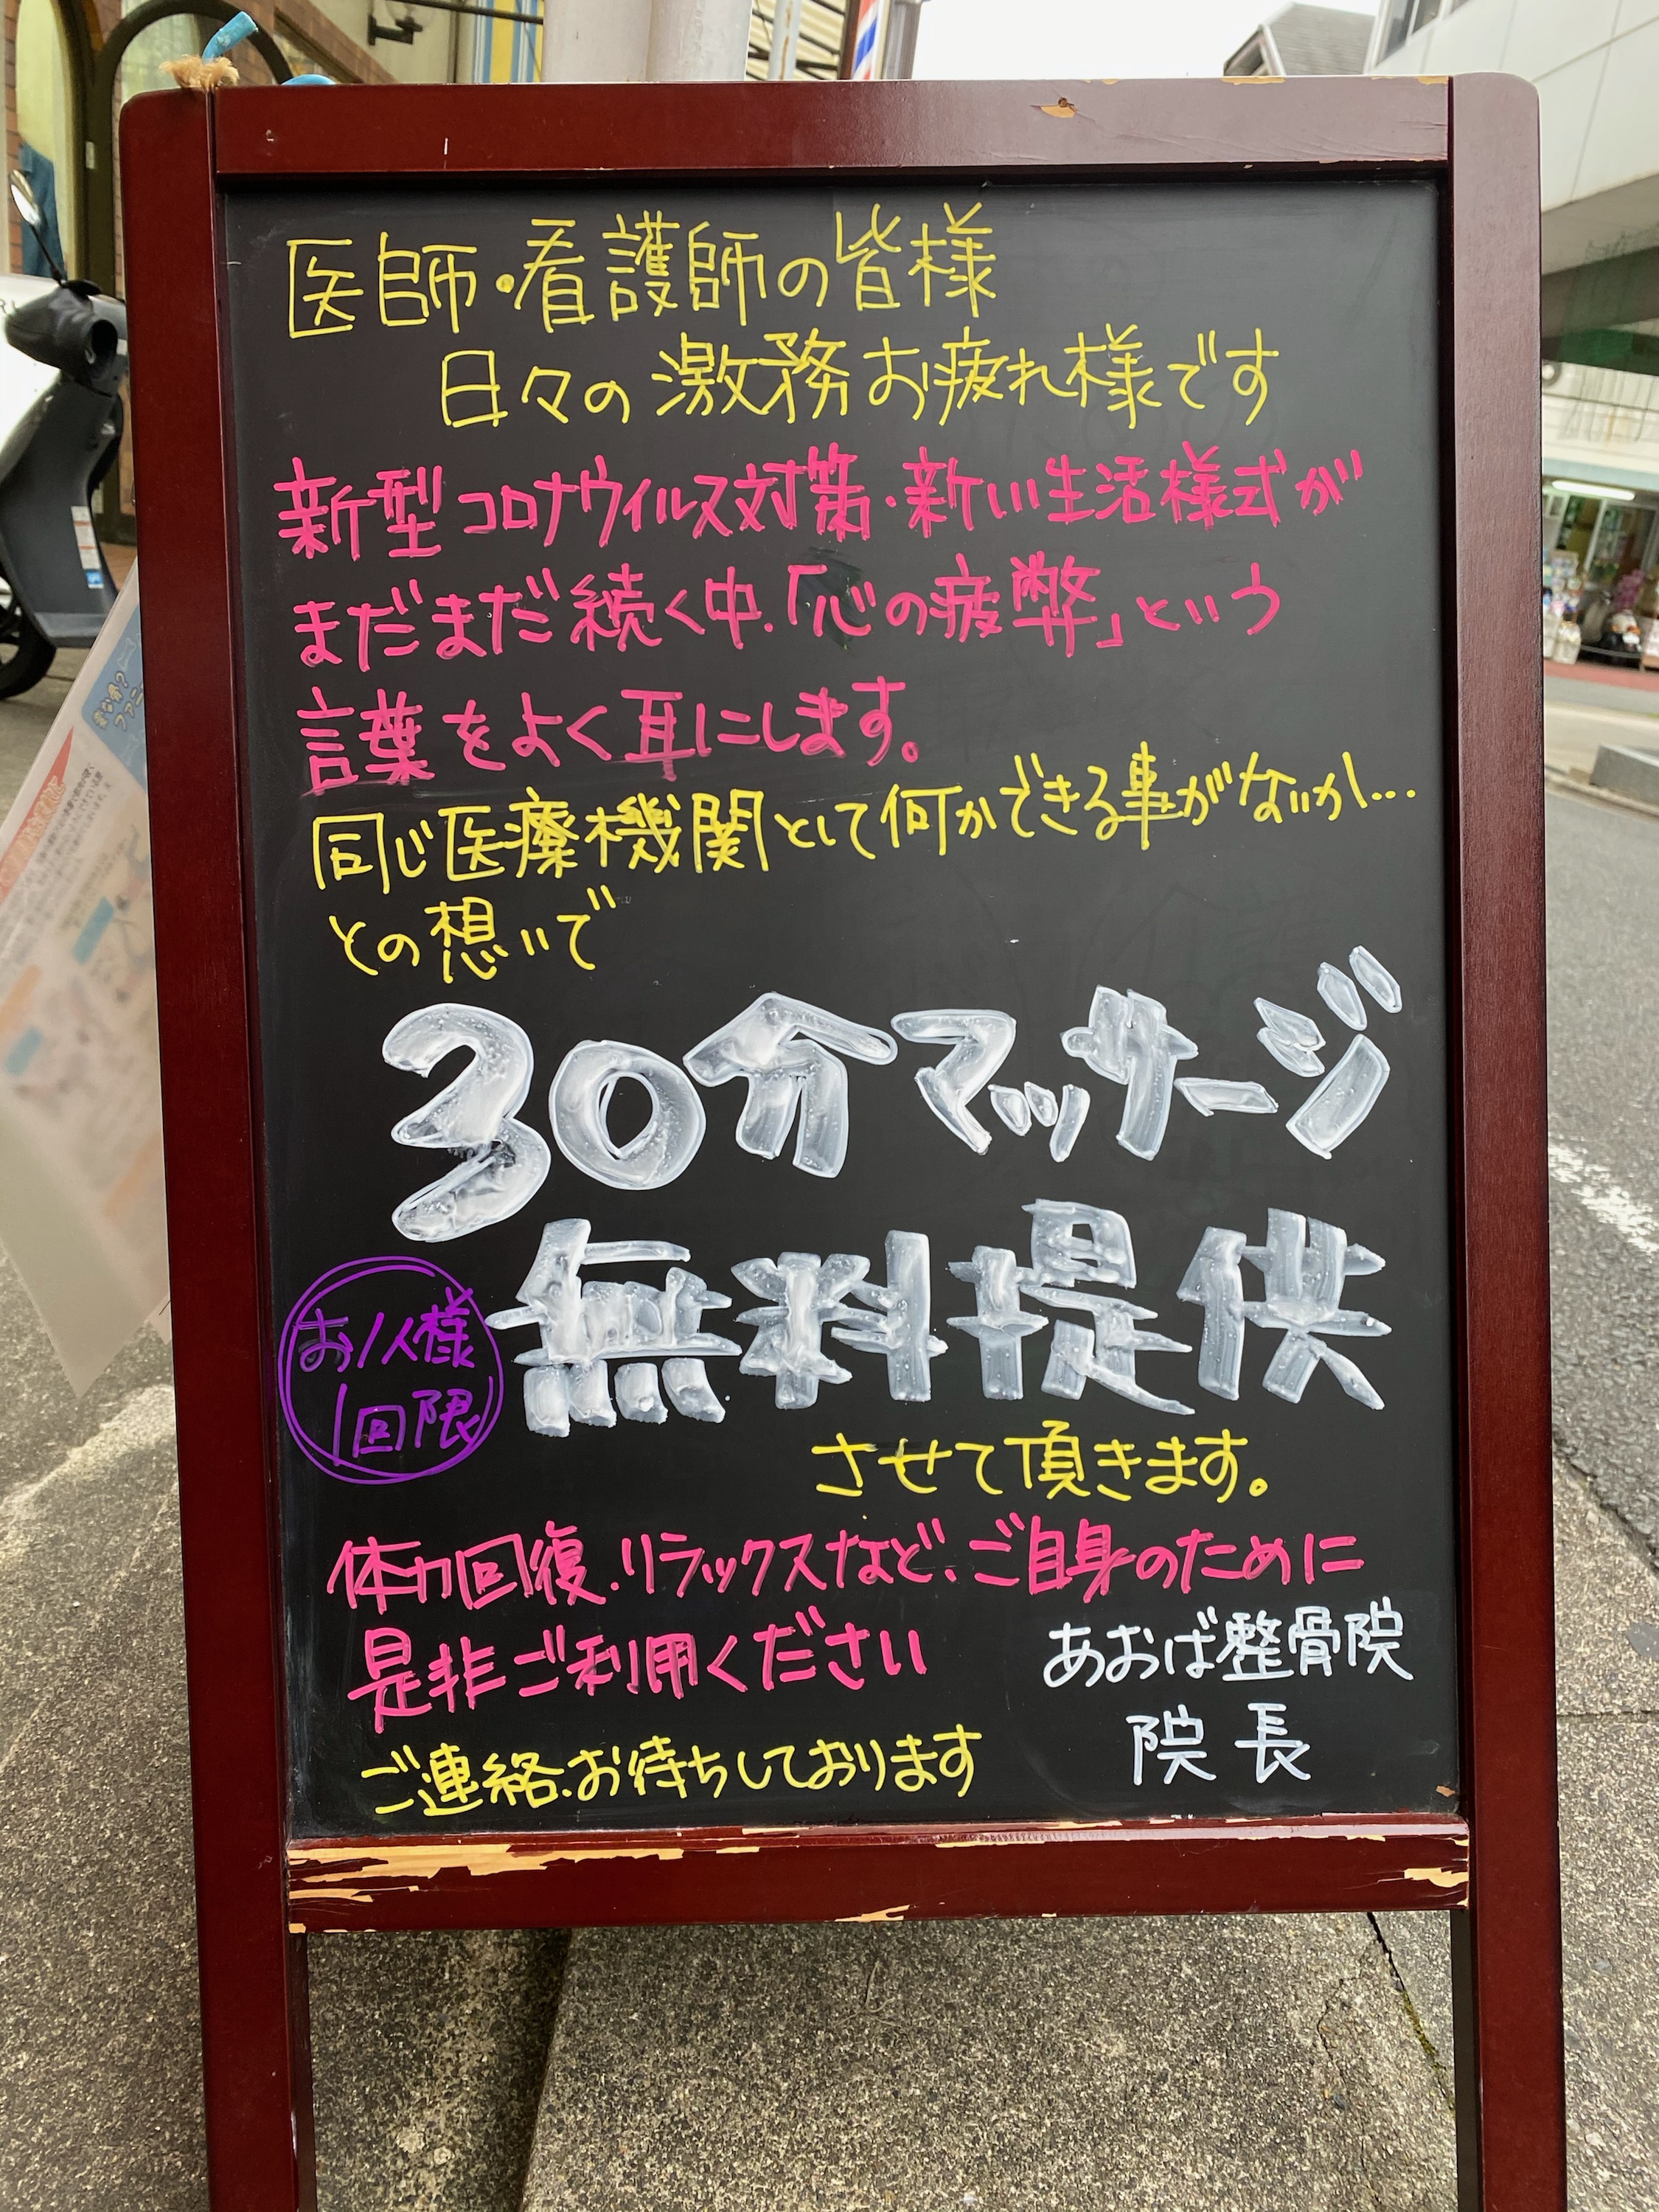 医師・看護師の皆様
日々の激務お疲れ様です
新型コロナウィルス対策・新しい生活様式が
まだまだ続く中、「心の疲弊」という
言葉をよく耳にします。
同じ医療機関として何かできる事がないか…
との想いで
30分マッサージ
無料提供
お1人様
1回限
させて頂きます。
体力回復、リラックスなど、ご自身のために
是非ご利用ください
あおば整骨院
院長
ご連絡、お待ちしております